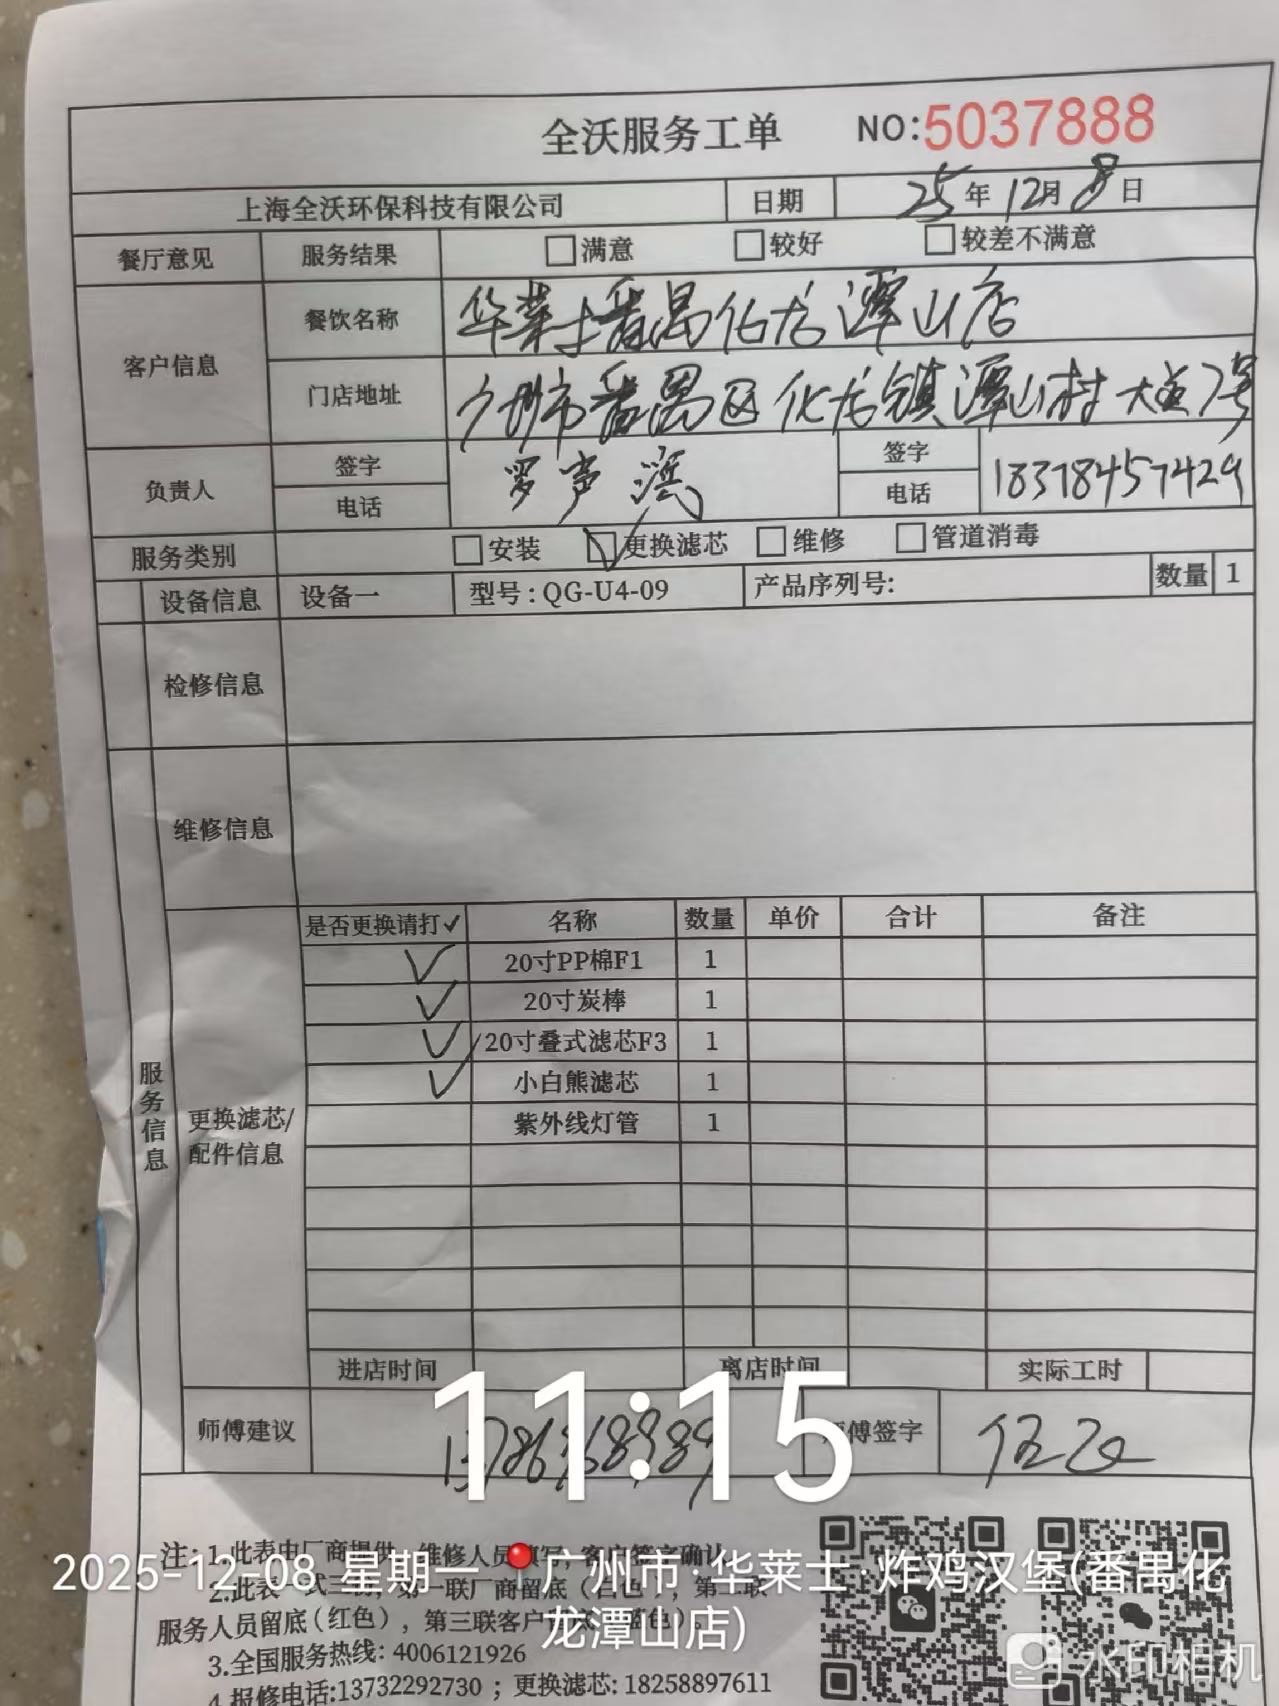 全沃服务工单 NO:5037888
上海全沃环保科技有限公司 日期 25年12月8日
餐厅意见 服务结果 □满意 □较好 □较差不满意
客户信息 餐饮名称 华莱士番禺化龙潭山店
门店地址 广州市番禺区化龙镇潭山村大道7号
负责人 签字 罗声滨 签字
电话 电话 18378457429
服务类别 □安装 ☑更换滤芯 □维修 □管道消毒
设备信息 设备一 型号:QG-U4-09 产品序列号: 数量 1
检修信息
维修信息
服务信息
更换滤芯/
配件信息
是否更换请打✓ 名称 数量 单价 合计 备注
✓ 20寸PP棉F1 1
✓ 20寸炭棒 1
✓ 20寸叠式滤芯F3 1
✓ 小白熊滤芯 1
紫外线灯管 1
进店时间 离店时间 实际工时
师傅建议 师傅签字
11:15
注:1.此表由厂商提供 维修人员填写,客户签字确认
2025-12-08 星期一 广州市·华莱士·炸鸡汉堡(番禺化
龙潭山店)
2.此表一式三 第一联厂商留底(白色), 第二联
服务人员留底(红色), 第三联客户
3.全国服务热线: 4006121926
4.报修电话:13732292730 ; 更换滤芯: 18258897611
水印相机